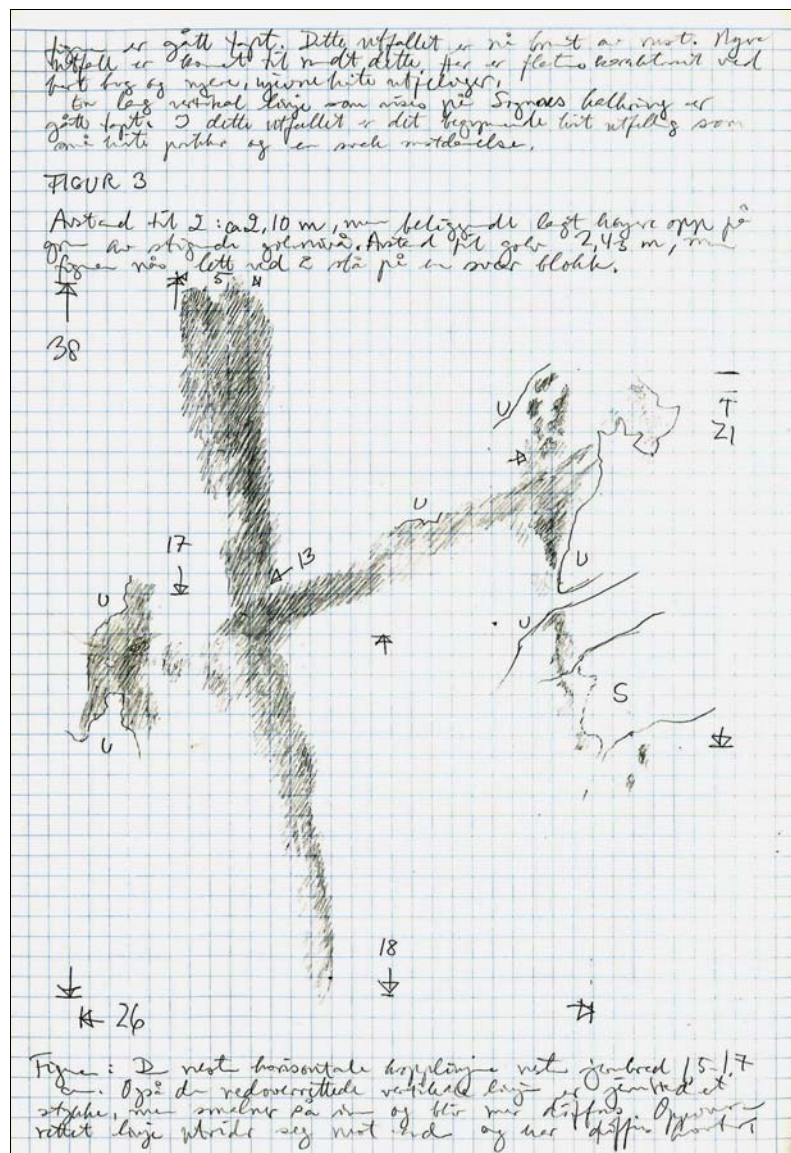 figuren er gått tapt. Dette utfallet er nå brunt av rust. Nyere
utfall er kommet til rundt dette. Her er flatene karakterisert ved
bort brug og nyere, ujevne hvite utfellinger.
En lang vertikal linje som vises på Sognnes kalkering er
gått tapt. I dette utfallet er det begynnende hvit utfelling som
små hvite prikker og en svak rustdannelse.
FIGUR 3
Avstand til 2: ca 2,10 m, men beliggende langt høyere opp på
grunn av stigende gulvnivå. Avstand til gulv 2,43 m, men
figuren nås lett ved å stå på en svær blokk.
5 4
38
U
T
21
U
17
13
U
U
U
U
S
18
26
Figuren: Den nesten horisontale kropplinjen nesten jevnbred, 1,5-1,7
cm. Også den nedoverrettede vertikale linjen er jevnbred et
stykke, men smalner så inn og blir mer diffus. Oppover-
rettet linje utvider seg mot enden og har diffus kontur i